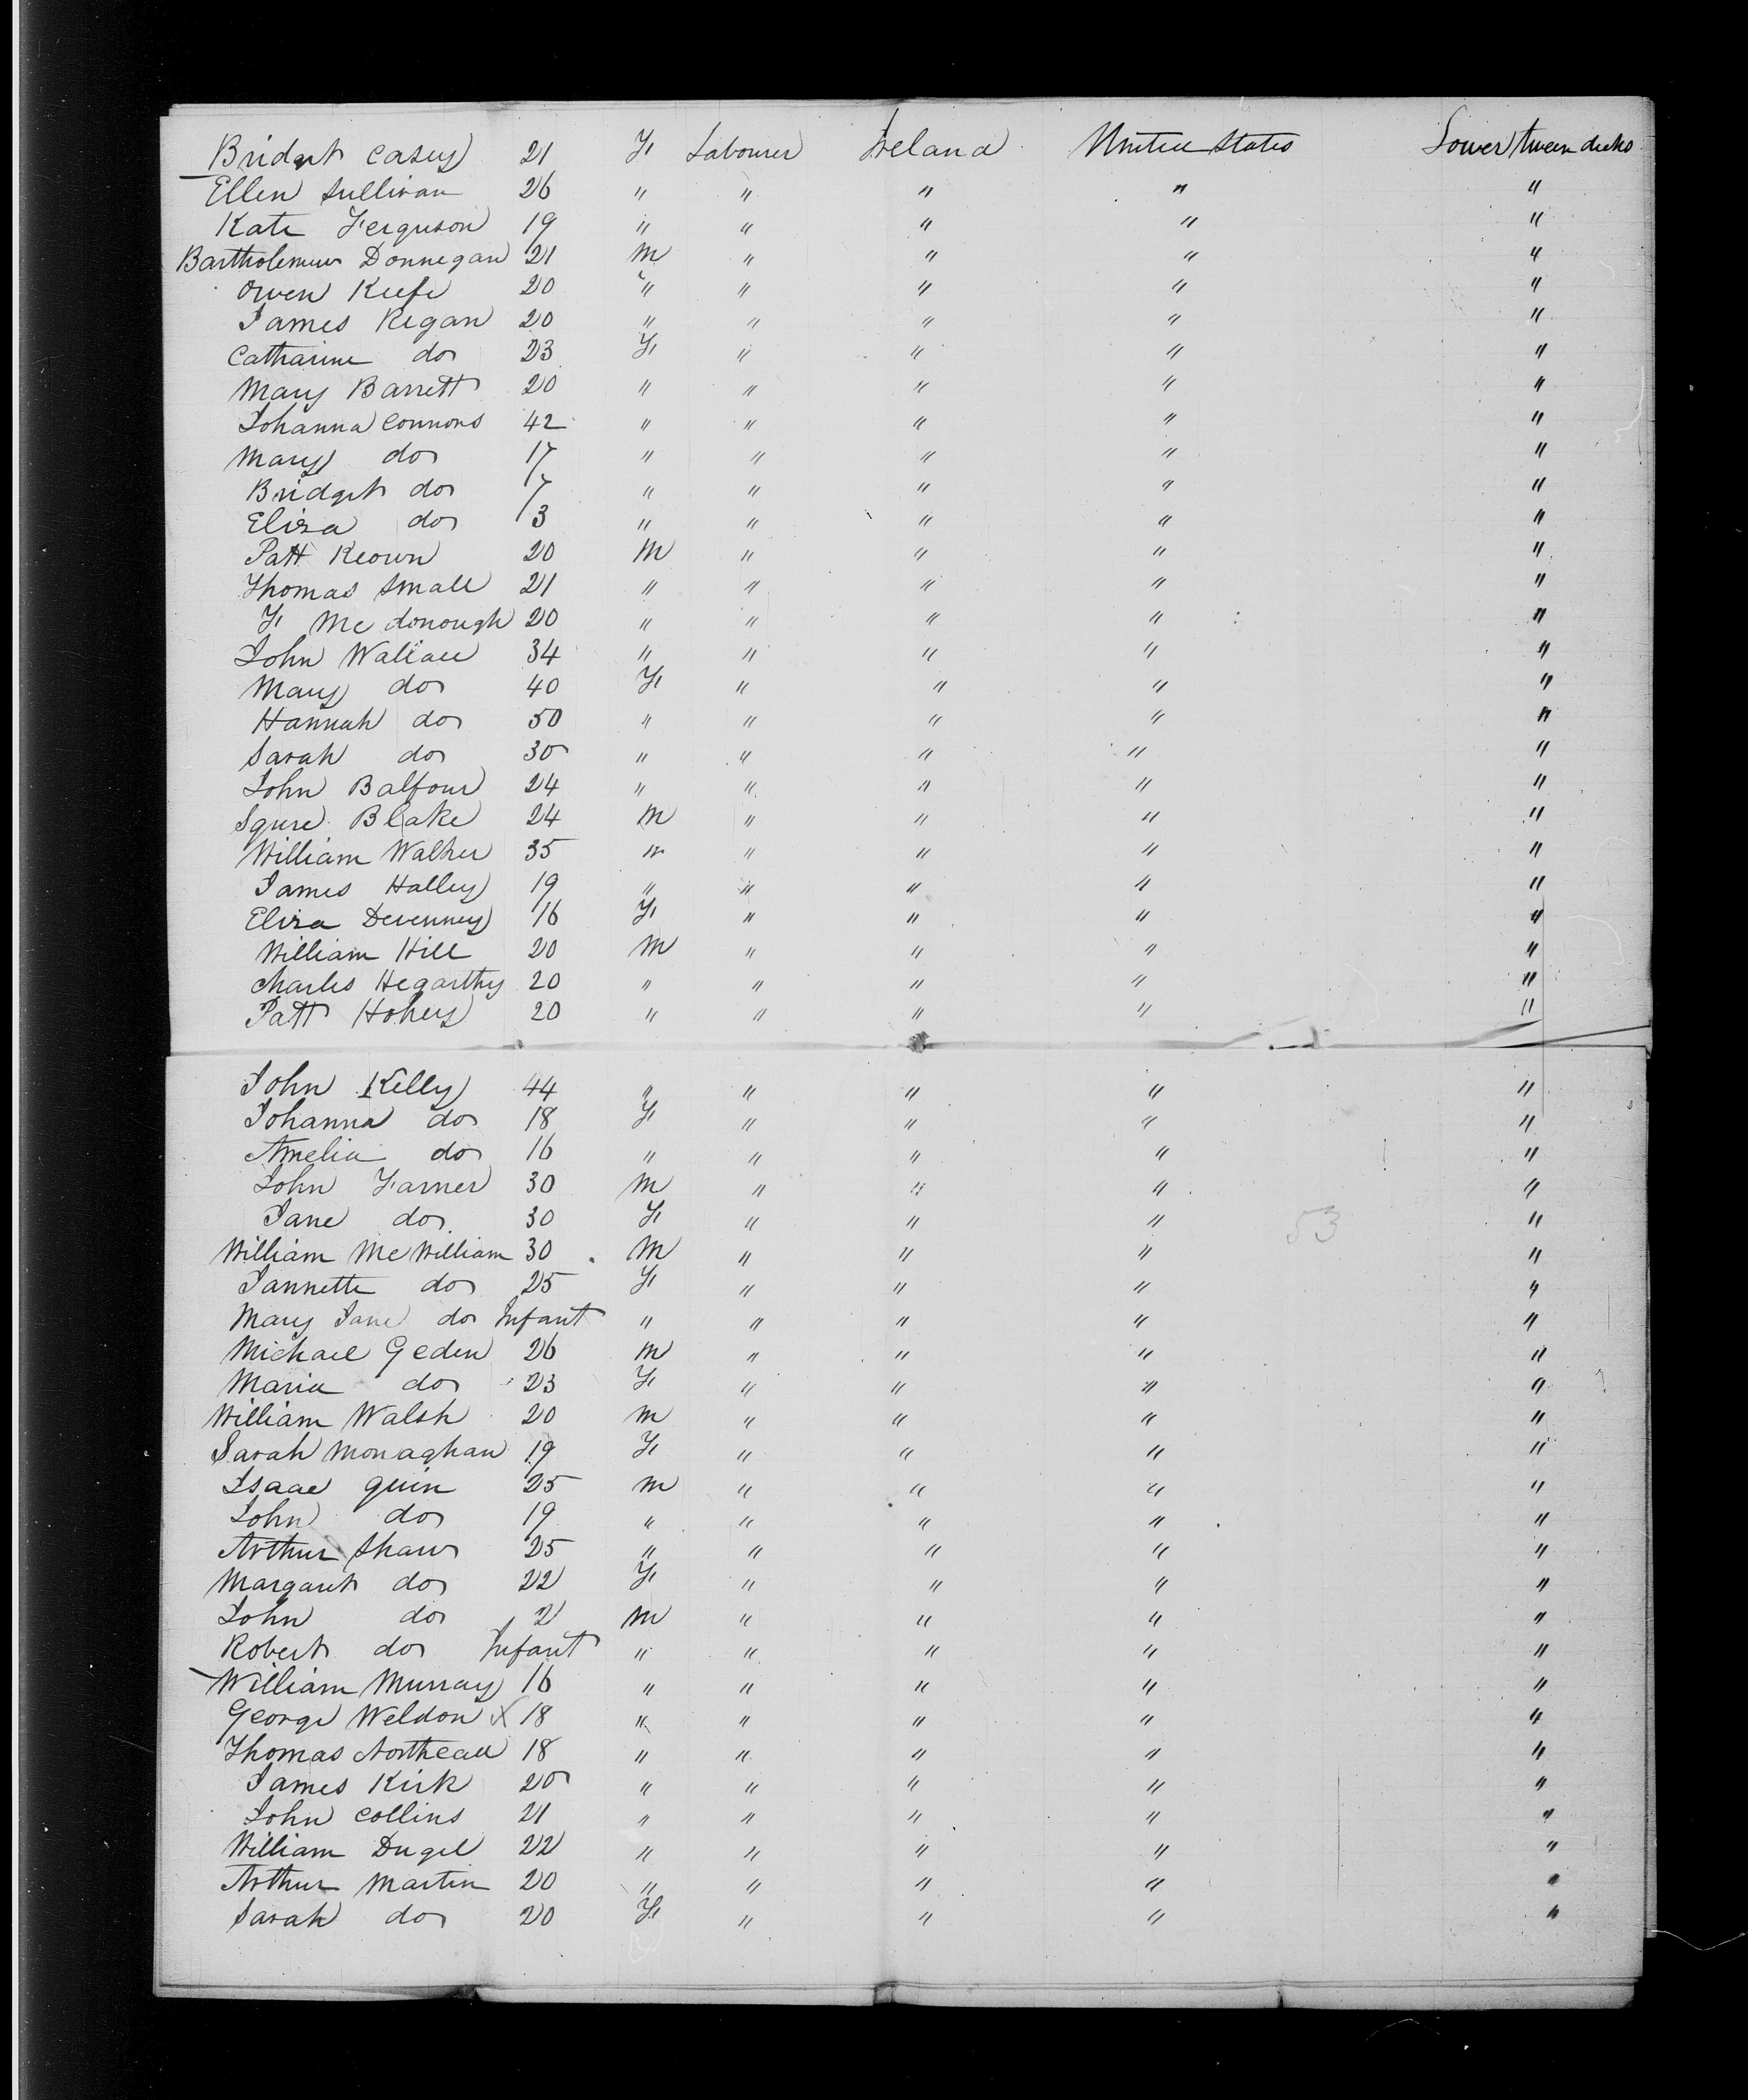 Bridget Casey 21 F Labourer Ireland United States Lower tween decks
Ellen Sullivan 26 " " " " "
Kate Ferguson 19 " " " " "
Bartholemew Donnegan 21 M " " " "
Owen Keefe 20 " " " " "
James Regan 20 " " " " "
Catharine do 23 F " " " "
Mary Barrett 20 " " " " "
Johanna Connors 42 " " " " "
Mary do 17 " " " " "
Bridget do 7 " " " " "
Eliza do 3 " " " " "
Patt Keown 20 M " " " "
Thomas Small 21 " " " " "
F McDonough 20 " " " " "
John Wallace 34 " " " " "
Mary do 40 F " " " "
Hannah do 50 " " " " "
Sarah do 30 " " " " "
John Balfour 24 " " " " "
Squre Blake 24 M " " " "
William Walker 35 " " " " "
James Halley 19 " " " " "
Eliza Devenney 16 F " " " "
William Hill 20 M " " " "
Charles Hegarthy 20 " " " " "
Patt Hohey 20 " " " " "
John Kelly 44 " " " " "
Johanna do 18 F " " " "
Amelia do 16 " " " " "
John Farner 30 M " " " "
Jane do 30 F " " " "
53
William McWilliam 30 M " " " "
Jannette do 25 F " " " "
Mary Jane do Infant " " " " "
Michael Geden 26 M " " " "
Maria do 23 F " " " "
William Walsh 20 M " " " "
Sarah Monaghan 19 F " " " "
Isaac Quin 25 M " " " "
John do 19 " " " " "
Arthur Shaw 25 " " " " "
Margaret do 22 F " " " "
John do 2 M " " " "
Robert do Infant " " " " "
William Murray 16 " " " " "
George Weldon X 18 " " " " "
Thomas 18 " " " " "
James Kirk 20 " " " " "
John Collins 21 " " " " "
William Dugel 22 " " " " "
Arthur Martin 20 " " " " "
Sarah do 20 F " " " "